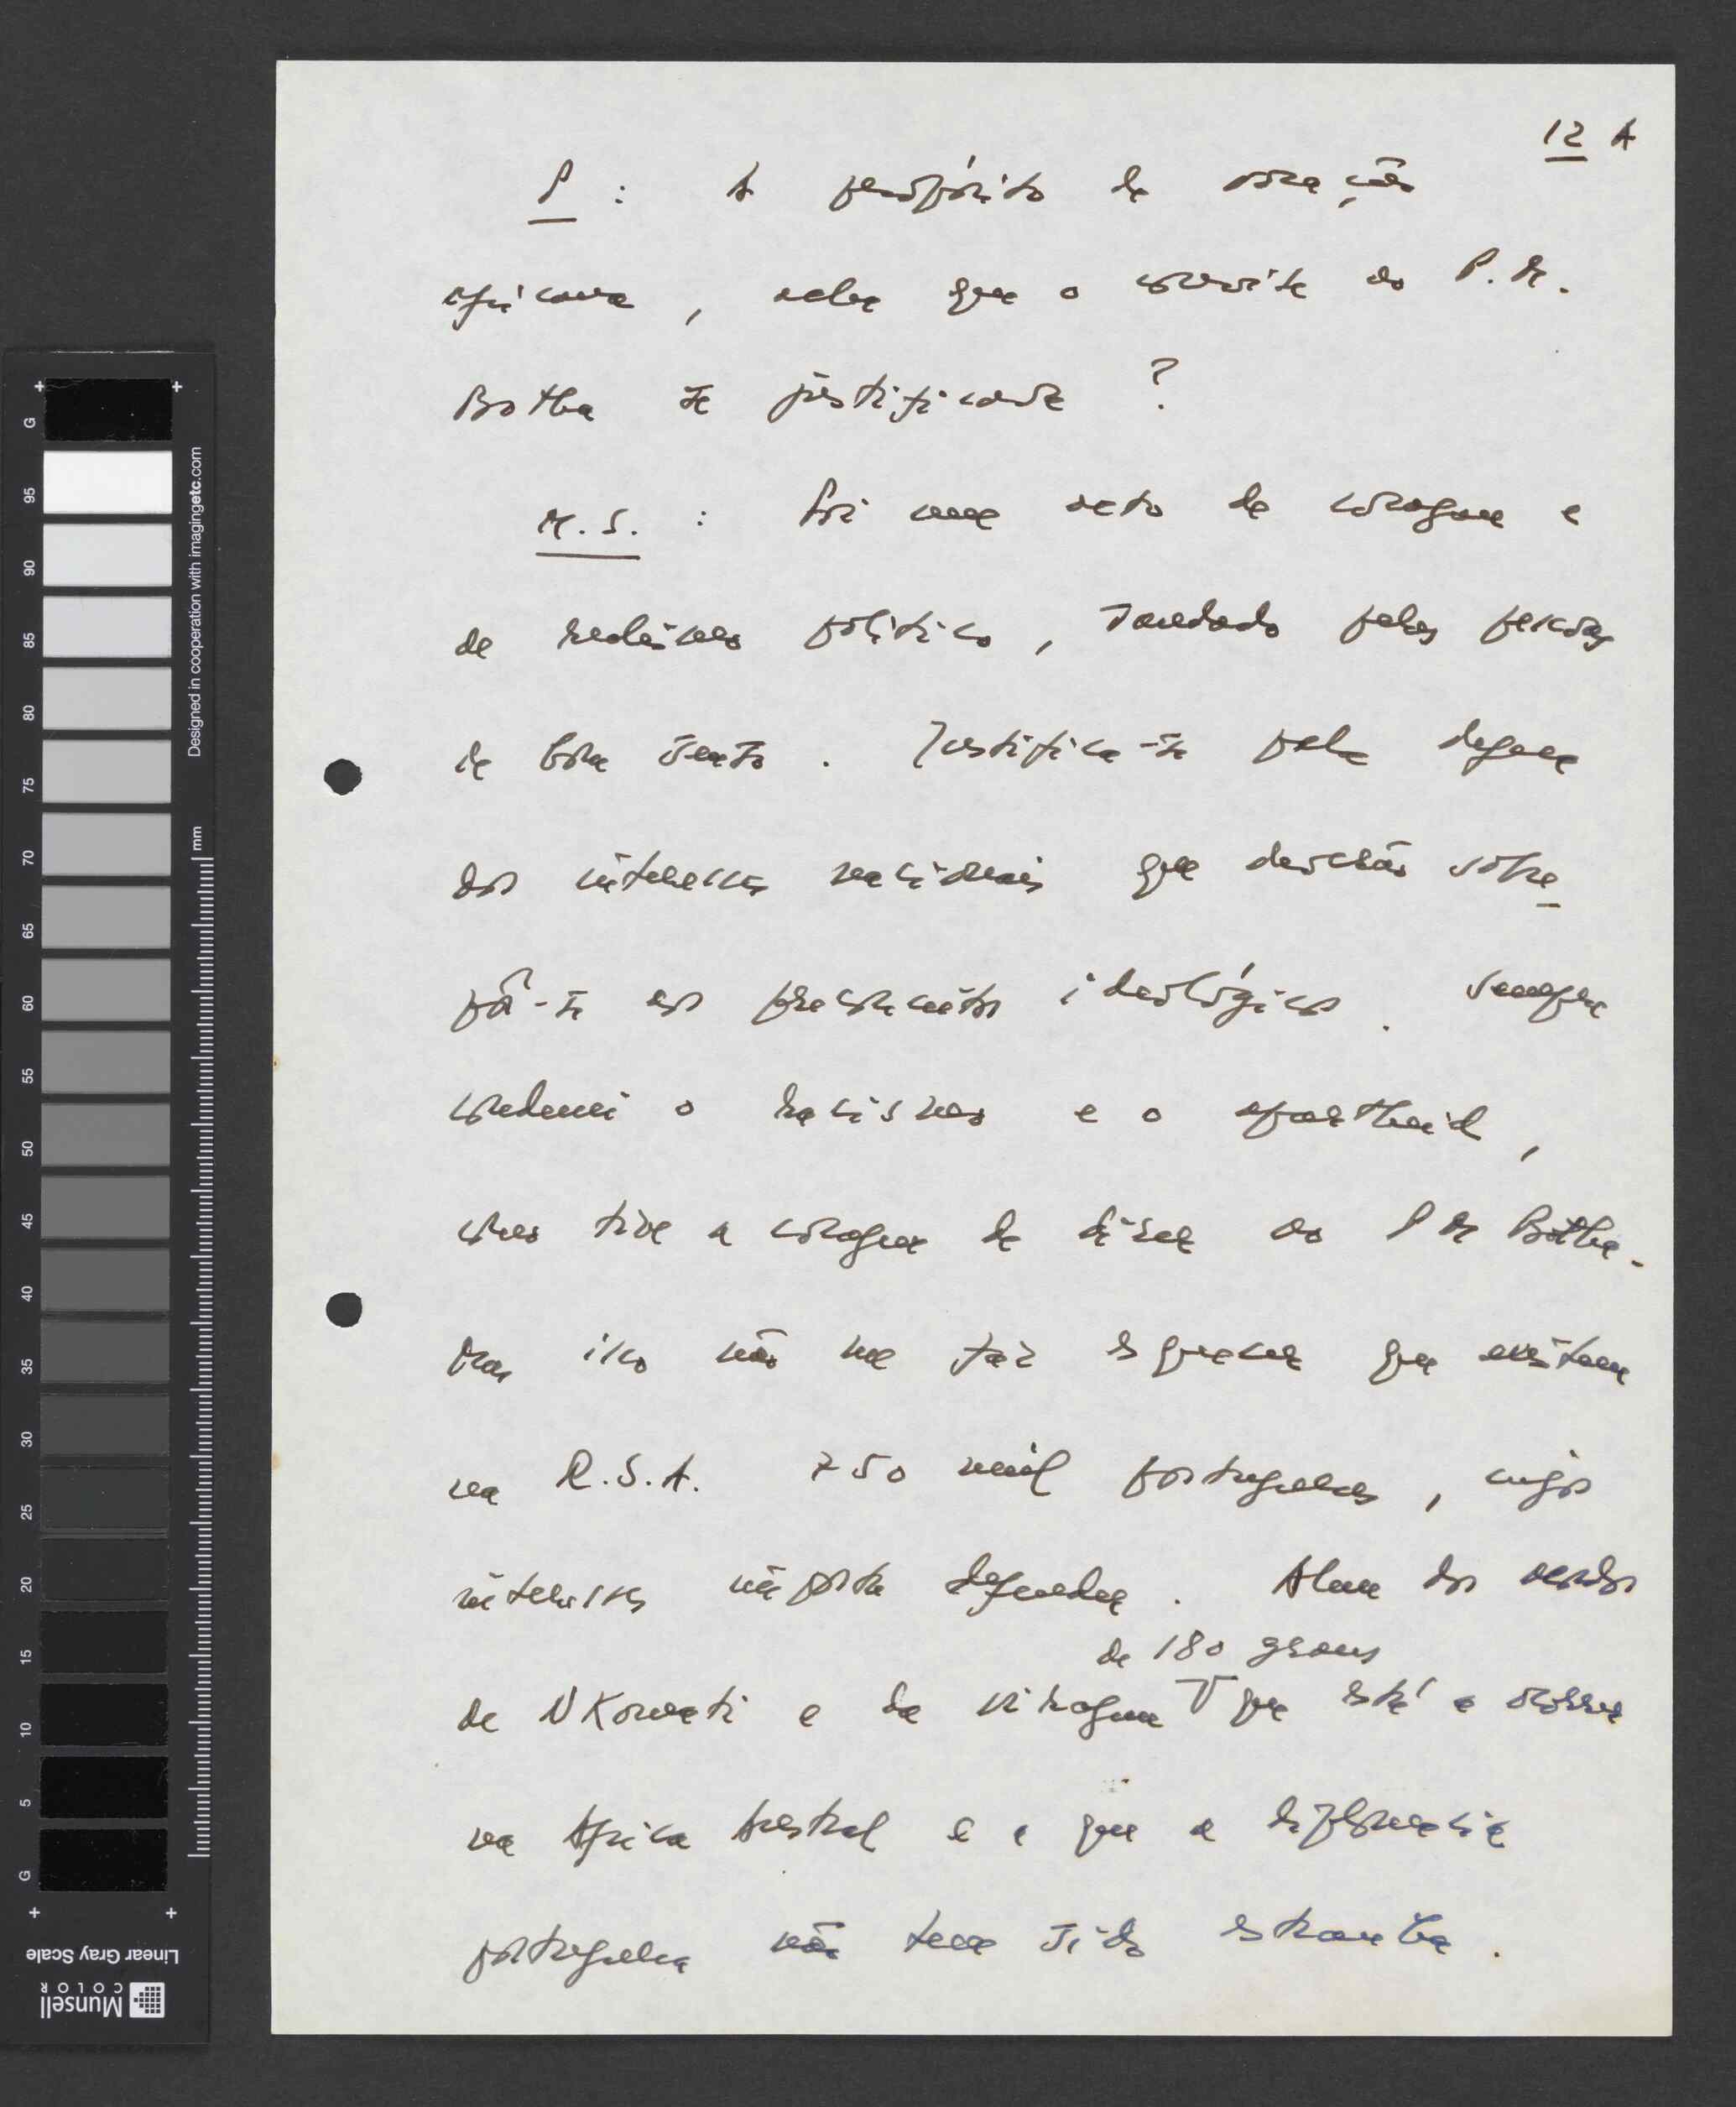 12 A
P : A propósito de vocação
africana, acha que o convite ao P. M.
Botha se justificava ?
M. S. : Foi um acto de coragem e
de realismo político, saudado pelas pessoas
de bom senso. Justifica-se pela defesa
dos interesses nacionais que deverão sobre
pôr-se aos preconceitos ideológicos. Sempre
condenei o racismo e o apartheid,
como tive a coragem de dizer ao P M Botha.
Mas isso não me faz esquecer que existem
na R.S.A. 750 mil portugueses, cujos
interesses importa defender. Alem dos acordos
de 180 graus
de NKomati e da viragem que está a ocorrer
na Africa Austral e a que a diplomacia
portuguesa não tem sido estranha.
G
95
90
85
80
75
70
65
60
55
50
45
40
35
30
25
20
15
10
5
G
mm
Designed in cooperation with imagingetc.com
Linear Gray Scale
Munsell
COLOR